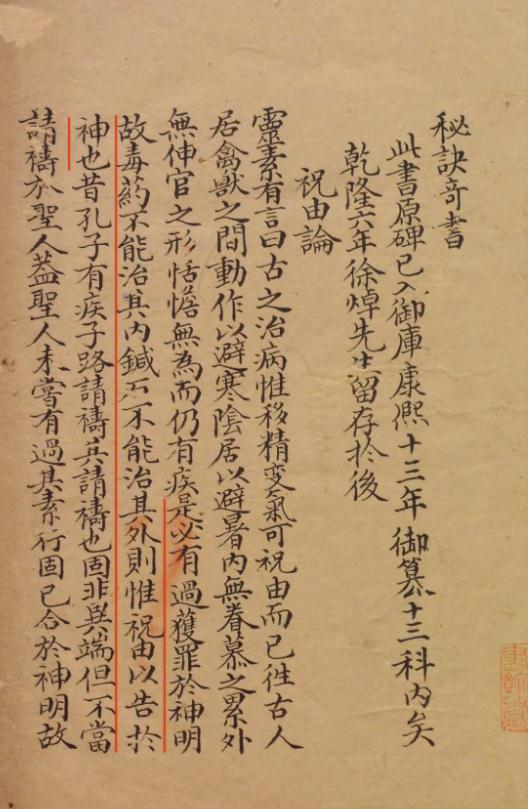 秘訣竒書
此書原碑已入御庫康熈十三年御纂十三科内矣
乾隆六年徐焯先生留存扵後
祝由論
靈素有言曰古之治病惟移精变氣可祝由而已徃古人
居禽獸之間動作以避寒陰居以避暑内無眷慕之累外
無伸官之形恬憺無為而仍有疾是必有過獲罪於神明
故毒葯不能治其内鍼石不能治其外則惟祝由以告扵
神也昔孔子有疾子路請禱其請禱也固非異端但不當
請禱於聖人葢聖人未嘗有過其素行固已合於神明故